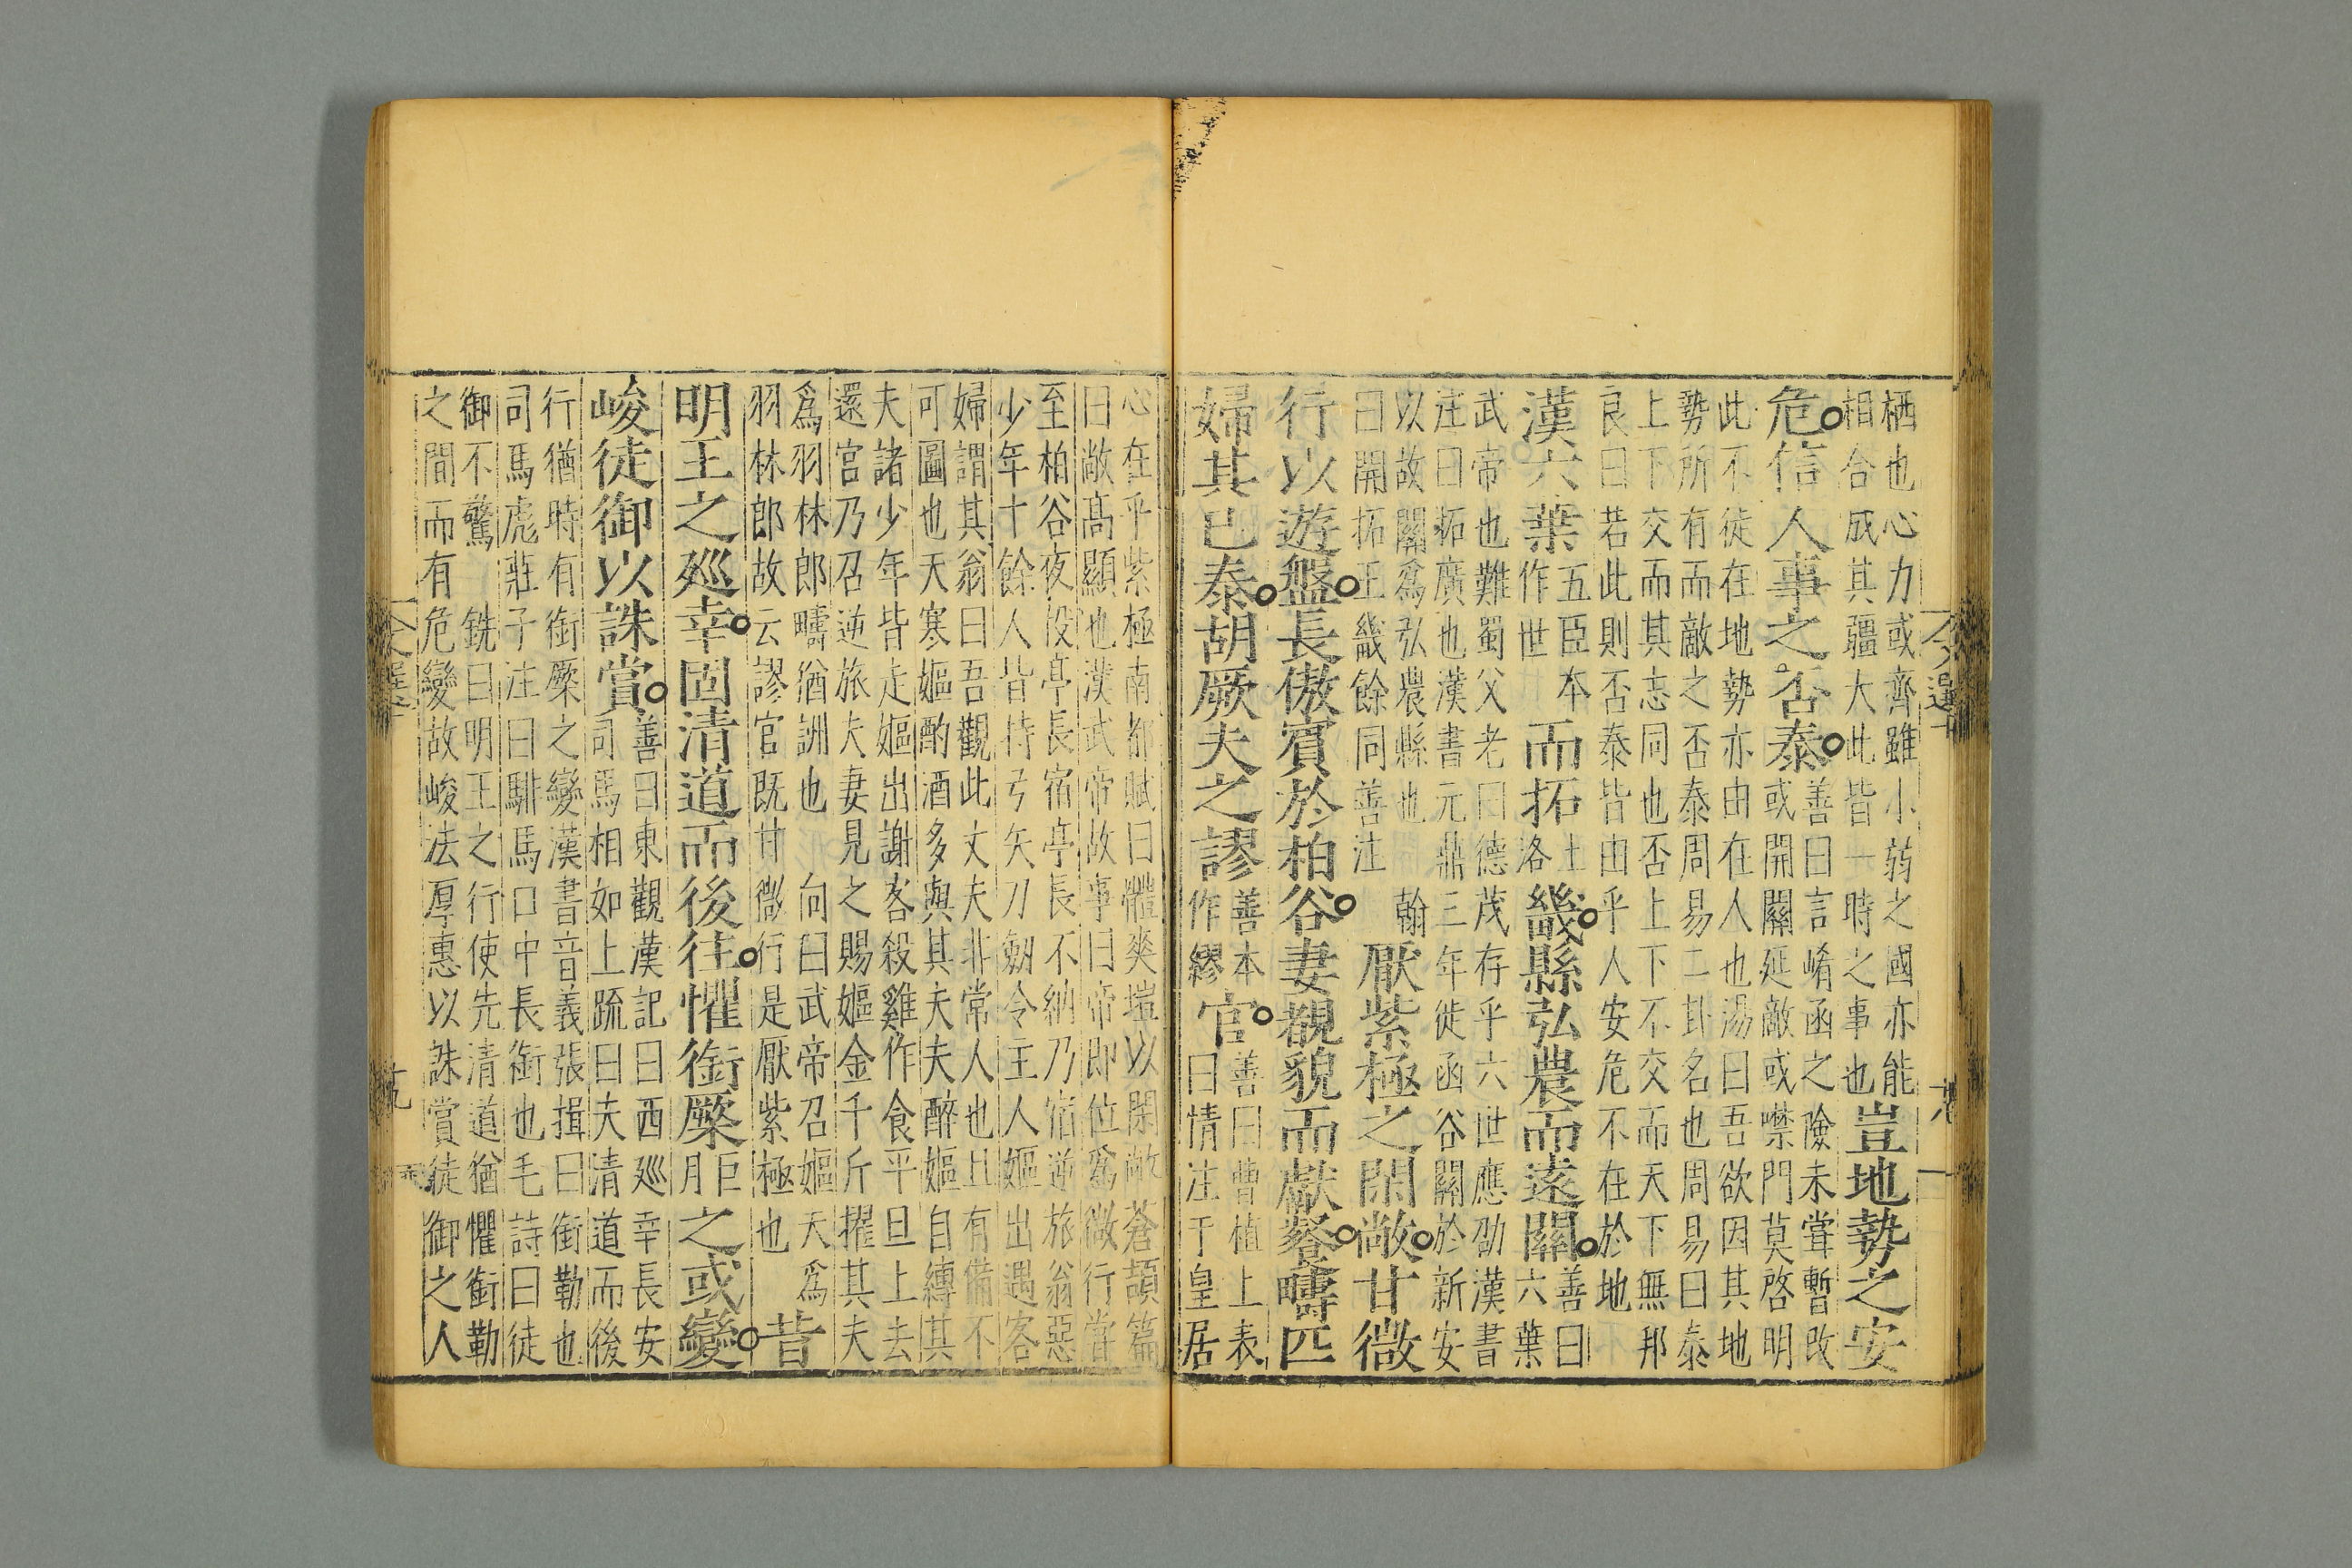 栖也心力或齊雖小弱之國亦能
相合成其疆大此皆一時之事也
豈地勢之安
危信人事之否泰
善曰言崤函之險未嘗暫改
或開關延敵或噤門莫啓明
此不徒在地勢亦由在人也湯曰吾欲因其地
勢所有而敵之否泰周易二卦名也周易曰泰
上下交而其志同也否上下不交而天下無邦
良曰若此則否泰皆由乎人安危不在於地
漢六葉
五臣本
作世
而拓
土
洛
畿縣弘農而遠關
善曰
六葉
武帝也難蜀父老曰德茂存乎六世應劭漢書
注曰拓廣也漢書元鼎三年徙函谷關於新安
以故關爲弘農縣也 翰
曰開拓王畿餘同善注
厭紫極之閑敞甘微
行以遊盤長傲賓於柏谷妻覩貌而獻餐疇匹
婦其已泰胡厥夫之謬
善本
作繆
官
善曰曹植上表
曰情注于皇居
心在乎紫極南都賦曰體爽塏以閑敞蒼頡篇
曰敞高顯也漢武帝故事曰帝即位爲微行嘗
至柏谷夜投亭長宿亭長不納乃宿逆旅翁惡
少年十餘人皆持弓矢刀劒令主人嫗出遇客
婦謂其翁曰吾觀此丈夫非常人也且有備不
可圖也天寒嫗酌酒多與其夫夫醉嫗自縛其
夫諸少年皆走嫗出謝客殺雞作食平旦上去
還宮乃召逆旅夫妻見之賜嫗金千斤擢其夫
爲羽林郎疇猶詶也 向曰武帝召嫗天爲
羽林郎故云謬官既甘微行是厭紫極也
昔
明王之廵幸固清道而後往懼銜橜
巨
月
之或變
峻徒御以誅賞
善曰東觀漢記曰西廵幸長安
司馬相如上疏曰夫清道而後
行猶時有銜橜之變漢書音義張揖曰銜勒也
司馬彪莊子注曰騈馬口中長銜也毛詩曰徒
御不驚 銑曰明王之行使先清道猶懼銜勒
之間而有危變故峻法厚惠以誅賞徒御之人